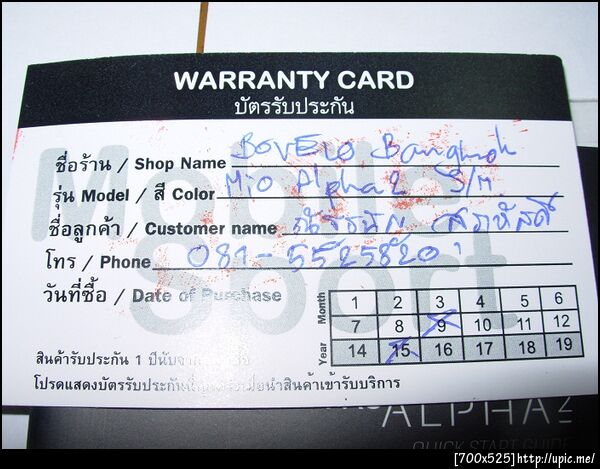 WARRANTY CARD
บัตรรับประกัน
ชื่อร้าน / Shop Name Bovelo Bangkok
รุ่น Model / สี Color Mio Alpha2 S/M
ชื่อลูกค้า / Customer name
โทร / Phone 081-5525820
วันที่ซื้อ / Date of Purchase
Month 1 2 3 4 5 6
7 8 9 10 11 12
Year 14 15 16 17 18 19
สินค้ารับประกัน 1 ปีนับจาก
โปรดแสดงบัตรรับประกัน นำสินค้าเข้ารับบริการ
Mobile
Sport
ALPHA 2
QUICK START GUIDE
[700x525]http://upic.me/